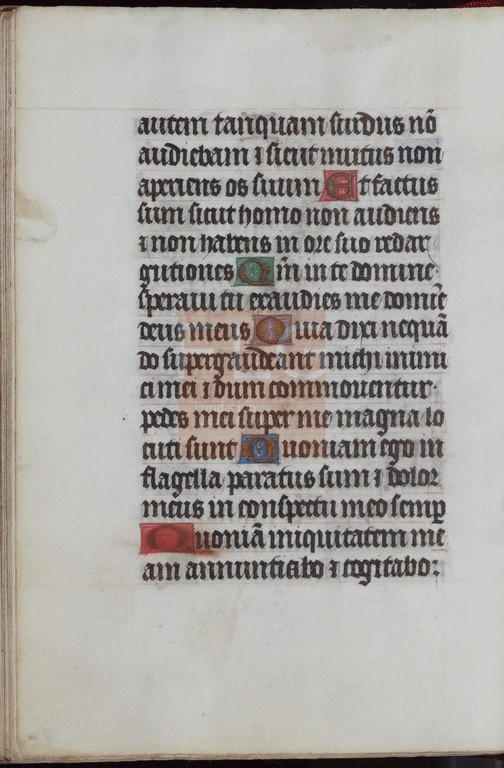 autem tanquam surdus nō
audiebam ⁊ sicut mutus non
aperiens os suum Et factus
sum sicut homo non audiens
⁊ non habens in ore suo redar
gutiones Qm̄ in te domine
speraui tu exaudies me domīe
deus meus Quia dixi nequā
do supergaudeant michi inimi
ci mei ⁊ dum commouentur
pedes mei super me magna lo
cuti sunt Quoniam ego in
flagella paratus sum ⁊ dolor
meus in conspectu meo semp
Quoniā iniquitatem me
am annuntiabo ⁊ cogitabo: